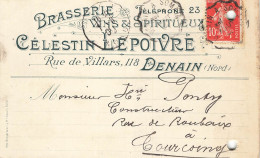 BRASSERIE
TÉLÉPHONE 23
VINS & SPIRITUEUX
CÉLESTIN LEPOIVRE
Rue de Villars, 118 DENAIN (Nord)
Monsieur
Construction
rue de Roubaix
à
Tourcoing